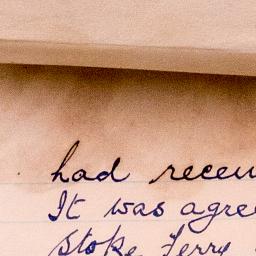 had recei
It was agre
Stoke Ferry